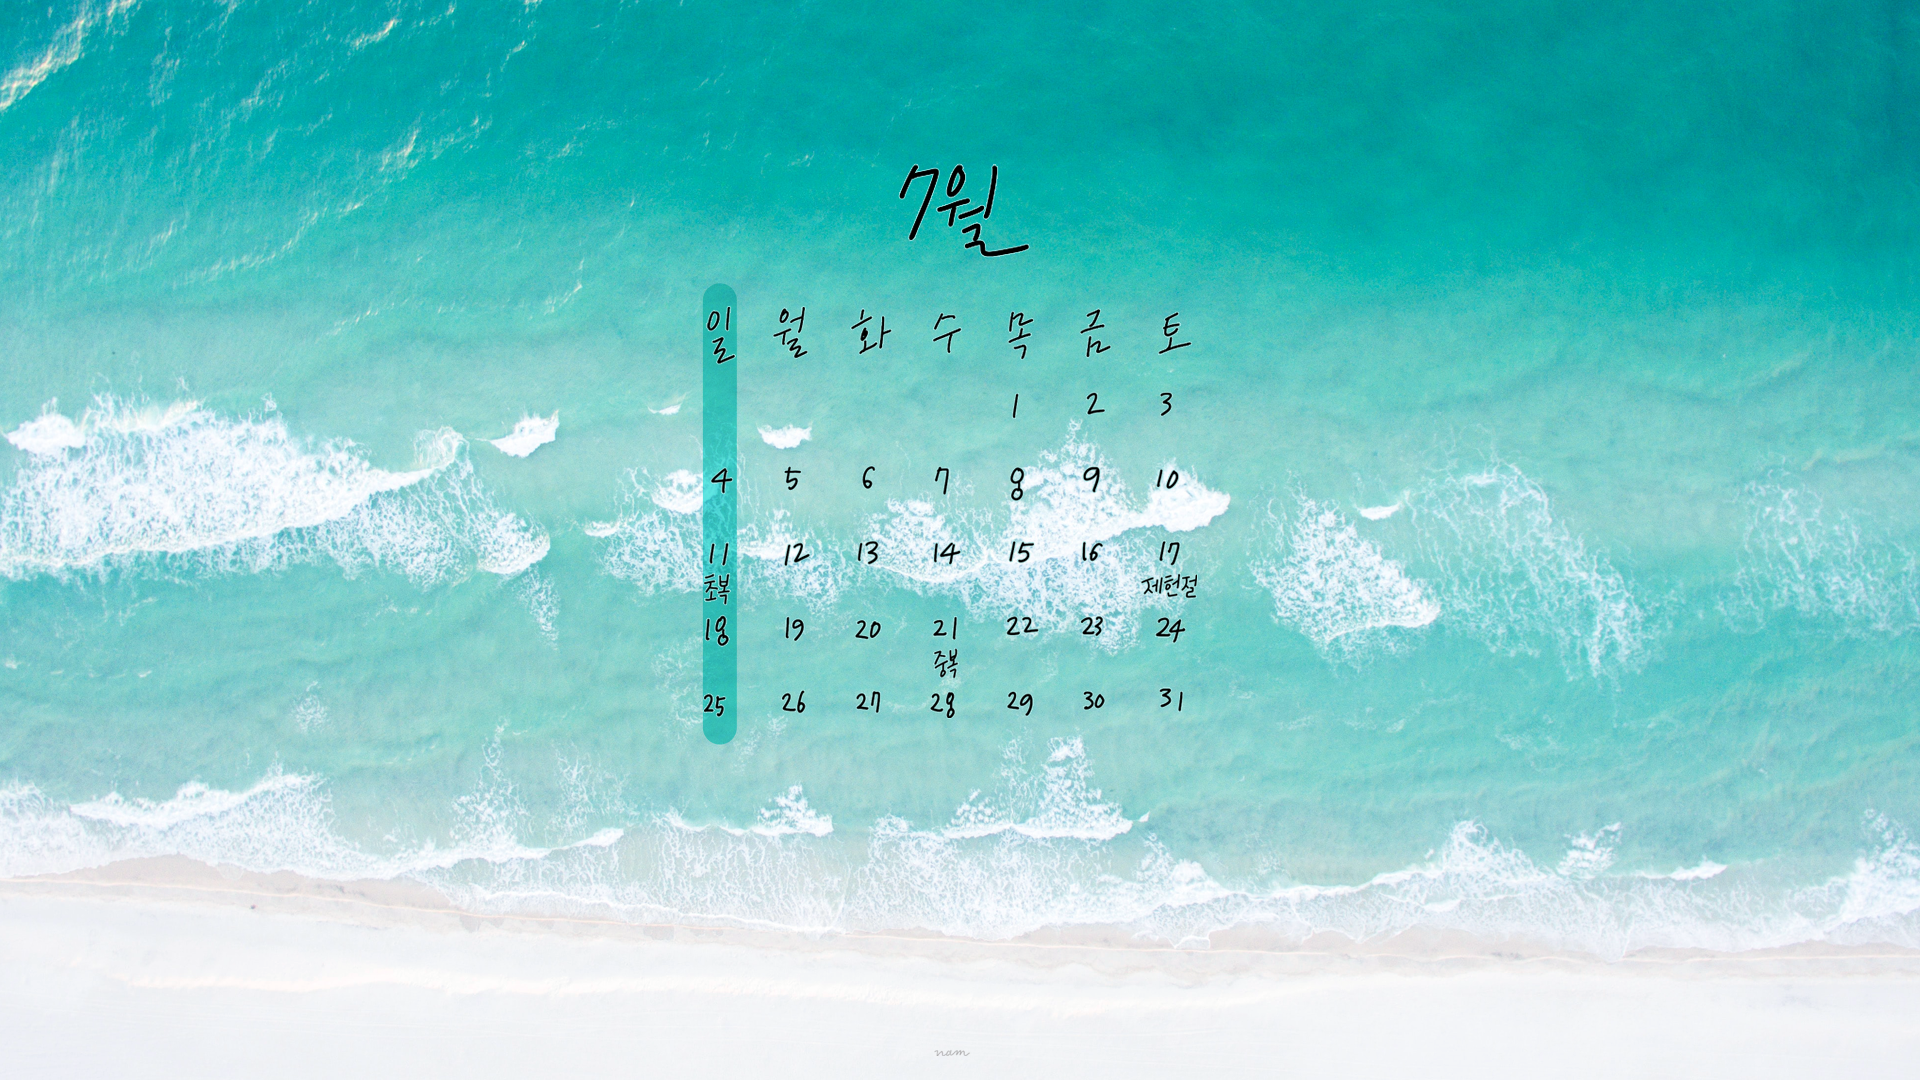 7월
일 월 화 수 목 금 토
1 2 3
4 5 6 7 8 9 10
11 12 13 14 15 16 17
초복 제헌절
18 19 20 21 22 23 24
중복
25 26 27 28 29 30 31
nam